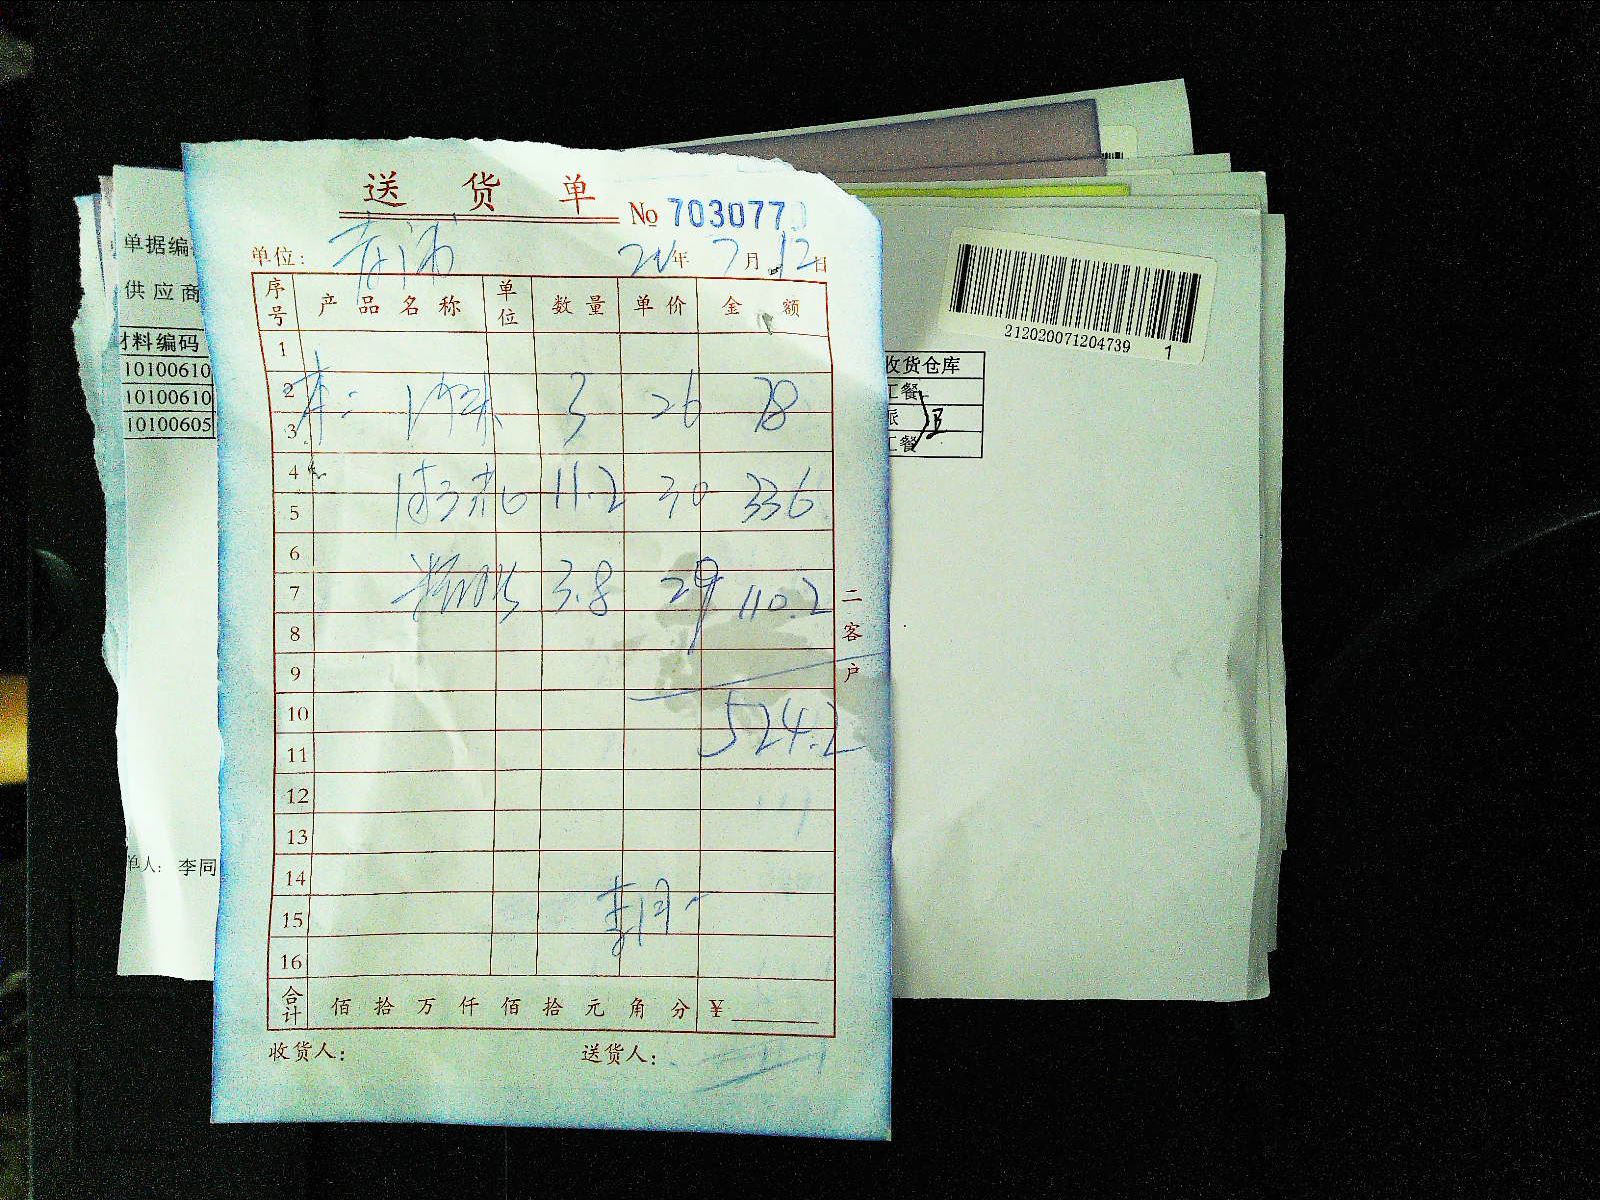 送货单
No 703077
单位: 青浦 20年7月12日
序号 产品名称 单位 数量 单价 金额
1
2
3 3 26 78
4
5 11.2 30 336
6
7 3.8 29 110.2
8
9
10
11 524.2
12
13
14
15
16
合计 佰拾万仟佰拾元角分 ¥
收货人: 送货人:
二客户
单据编
供应商
材料编码
10100610
10100610
10100605
单人: 李同
212020071204739
1
收货仓库
工餐
派
工餐